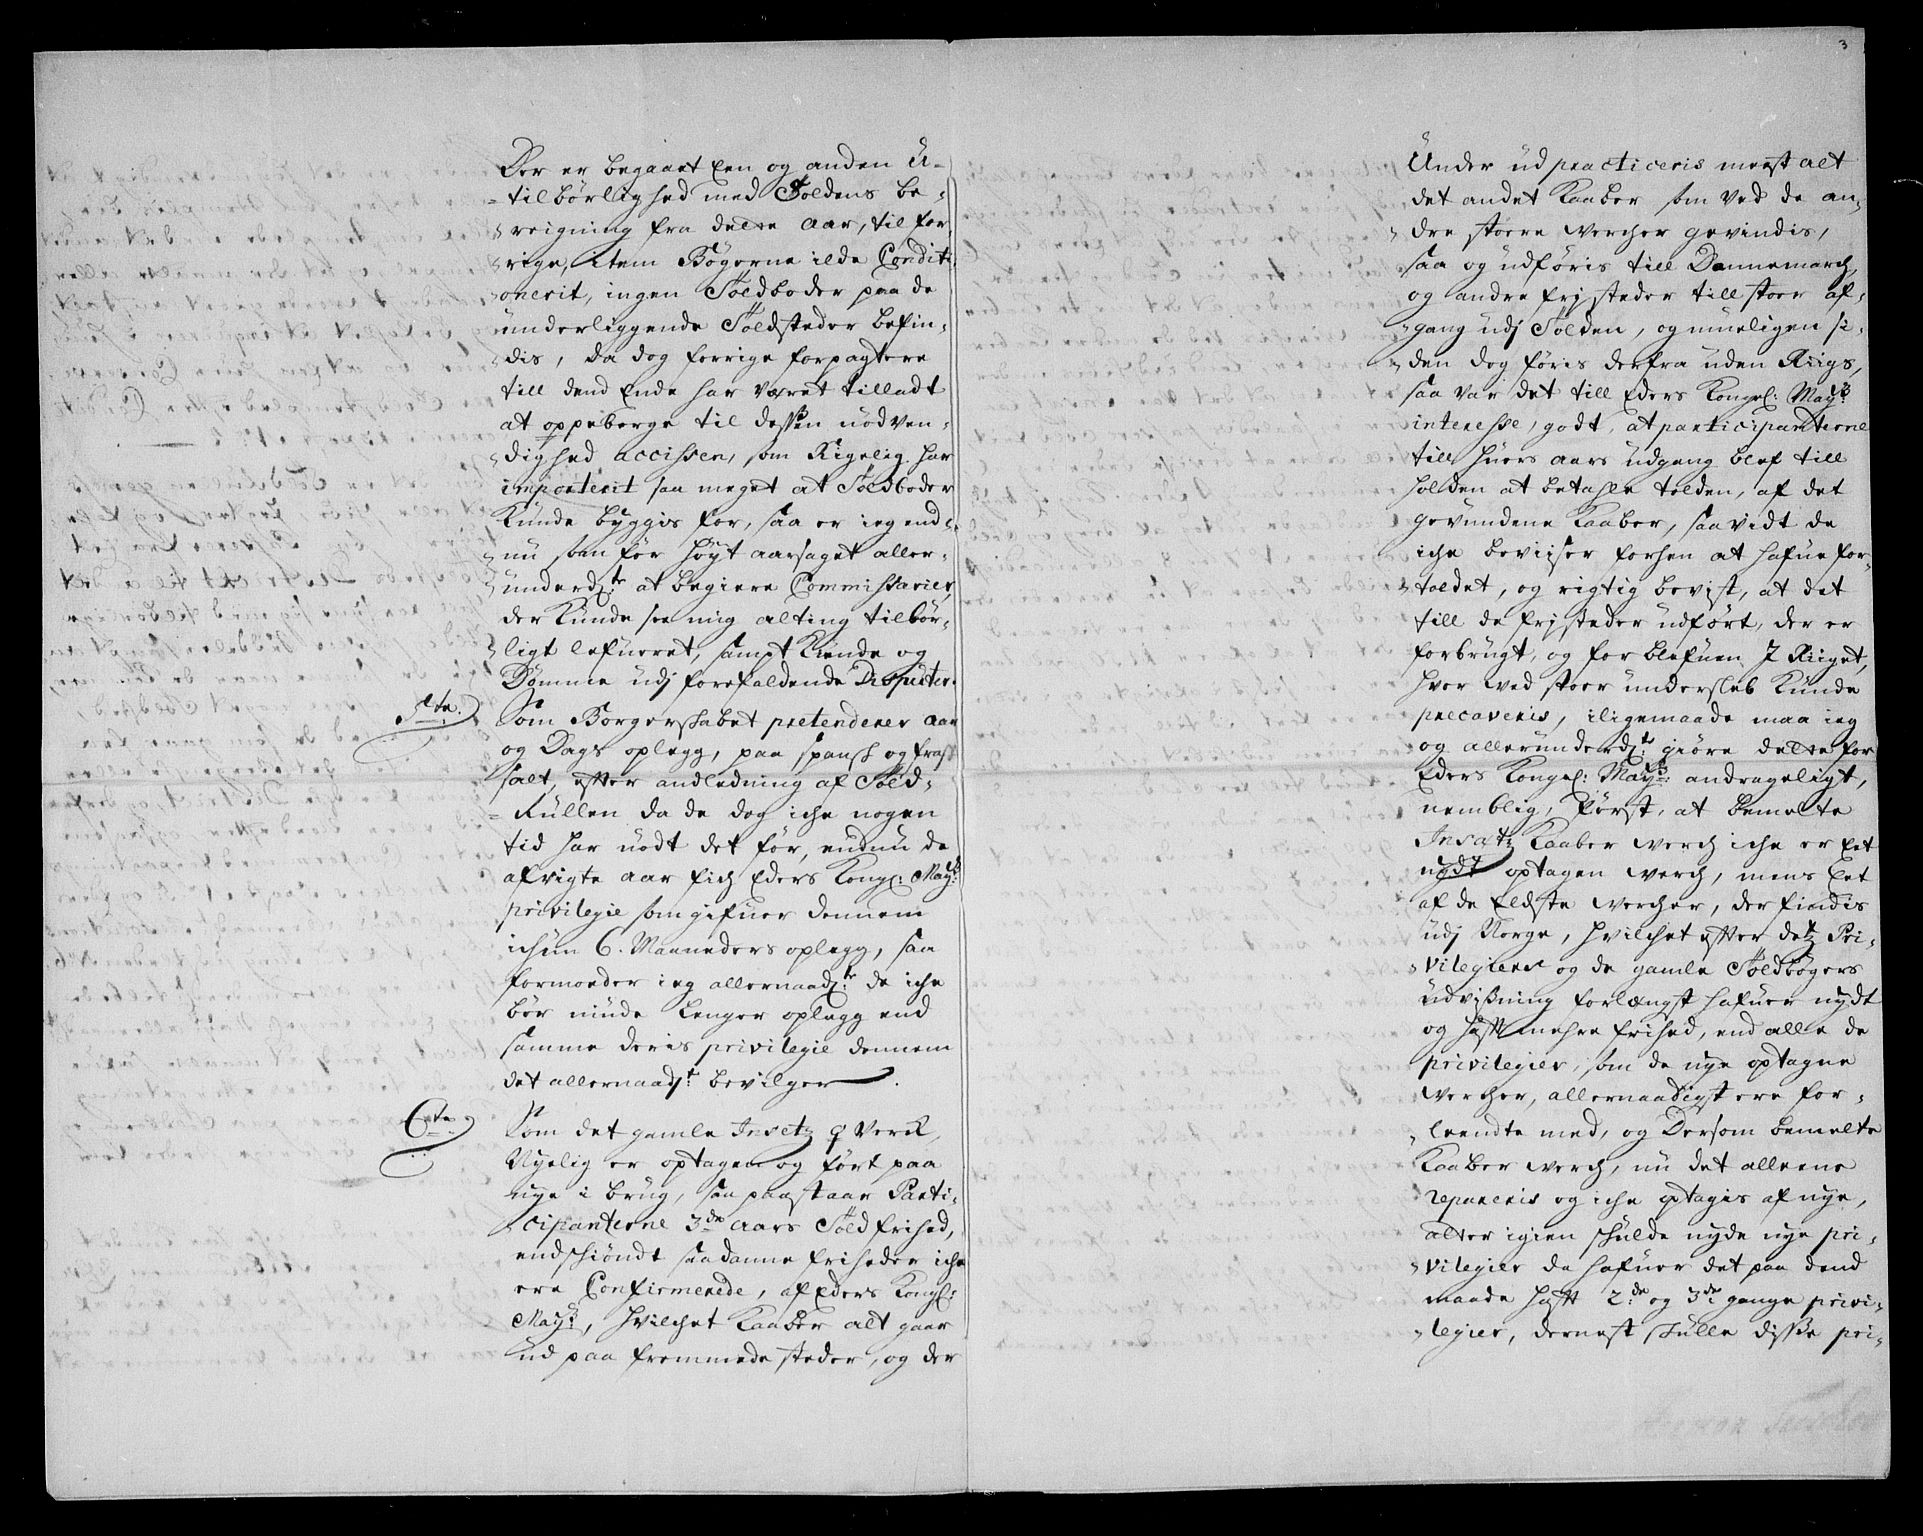 3
Der er begaaet Een og anden U-
-tilbørlighed med Toldens be-
reigning fra dette Aar, til for
rige, Item Bøgerne ilde Conditi
onerit, ingen Toldboder paa de
underliggende Toldsteder befin-
dis, da dog forrige forpagtere
till dend Ende har Været tilladt
at oppeberge til dessen nödven-
dighed accissen, som Rigelig har
importerit saa meget at Toldboder
Kunde byggis for, saa er ieg end-
nu som för høyt aarsaget aller-
underd:te at begiere Commissarier,
der Kunde see mig alting tilbör-
ligt lefueret, sampt Kiende og
Dömme udj forefaldende Disputer.
5te. Som Borgerskabet pretenderer Aar
og Dags oplegg, paa Spansk og frask
salt, efter andledning af Told-
-Rullen da de dog iche nogen
tid har nödt det för, endnu de
afvigte aar fich Eders Kongl: May:ts
privilegie som gifuer dennem
ichun 6. Maaneders oplegg, saa
formoeder ieg allernaad:te de iche
bör niude lenger oplegg end
samme deris privilegie dennem
det allernaad:t bevilger.
6te. Som det gamle Insetz ♀ Verck,
Nyelig er optagen og fört paa
nye i brug, saa paastaar Parti-
cipanterne 3de Aars Told frihed,
endskiöndt saadanne friheder iche
ere Confirmerede, af Eders Kongl:
May:ts, hvilchet Kaaber alt gaar
ud paa fremmede steder, og der
Under ud practiceris meest alt
det andet Kaaber som ved de an-
dre stoere Wercher gevindis,
saa og udföris till Dannemarch,
og andre frj steder till stoer af-
gang udj Tolden, og mueligen si-
den dog föris derfra uden Riigs,
saa var det till Eders Kongel: May:ts
interesse, godt, at participanterne
till huers aars udgang blef till
holden at betahle tolden, af det
gevundene Kaaber, saavidt de
iche beviiser forhen at hafue for-
toldet, og rigtig bevist, at det
till de frj steder udfört, der er
forbrugt, og for blefuen J Riiget,
hvor ved stoer undersleb Kunde
precaveris, iligemaade maa ieg
og allerunderd:t giöre dette for
Eders Kongel: May:ts andrageligt,
nemblig, först, at bemelte
Insatz Kaaber werch iche er Eet
nydt optagen werch, mens Eet
af de Eldste wercher, der findis
udj Norge, hvilchet efter detz Pri-
vilegier og de gamle Toldbögers
udvisning forlængst hafuer nydt
og haft mehre frihed, end alle de
privilegier, som de nye optagne
wercher, allernaadigst ere for-
leendte med, og Dersom bemelte
Kaaber werch, nu det alleene
repareris og iche optagis af nye,
atter igien skulde nyde nye pri-
vilegier da hafuer det paa dend
maade haft 2:de og 3:de gange privi-
legier, dernest skulle disse pri-